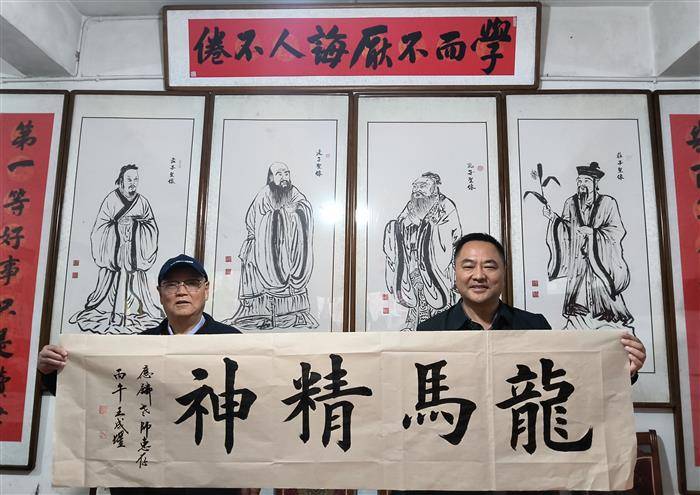 學而不厭誨人不倦
莊子聖像
孔子聖像
老子聖像
孟子聖像
第一等好事只是讀
龍馬精神
老師惠存
丙午王成耀